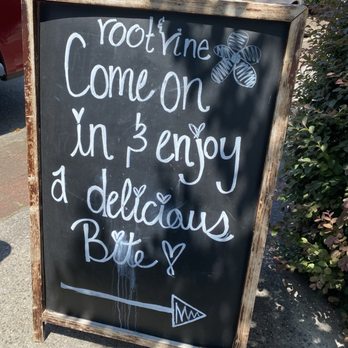 root & vine
Come on
in & enjoy
a delicious
Bite !